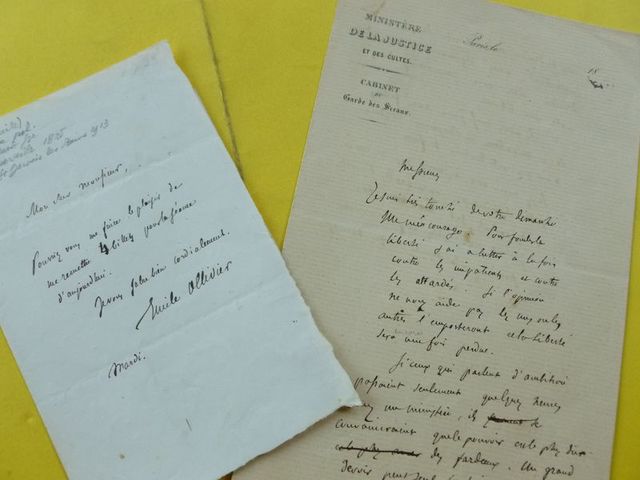 1825
St Gervais les Bains 1913
Mon cher monsieur,
Pouvez vous me faire le plaisir de
me remettre 4 billets pour la séance
d'aujourd'hui.
Je vous salue bien cordialement.
Emile Ollivier
Mardi.
MINISTÈRE
DE LA JUSTICE
ET DES CULTES.
CABINET
DU
Garde des Sceaux.
18
Messieurs
Je suis très touché de votre démarche
Elle m'encourage. Pour fonder la
liberté j'ai à lutter à la fois
contre les impatients et contre
les attardés. Si l'opinion
ne nous aide pas les uns ou les
autres l'emporteront et la liberté
sera une fois perdue.
Si ceux qui parlent d'ambition
passaient seulement quelques heures
un ministère, ils
convaincraient que le pouvoir est le plus dur
des fardeaux. Un grand
devoir peut seul